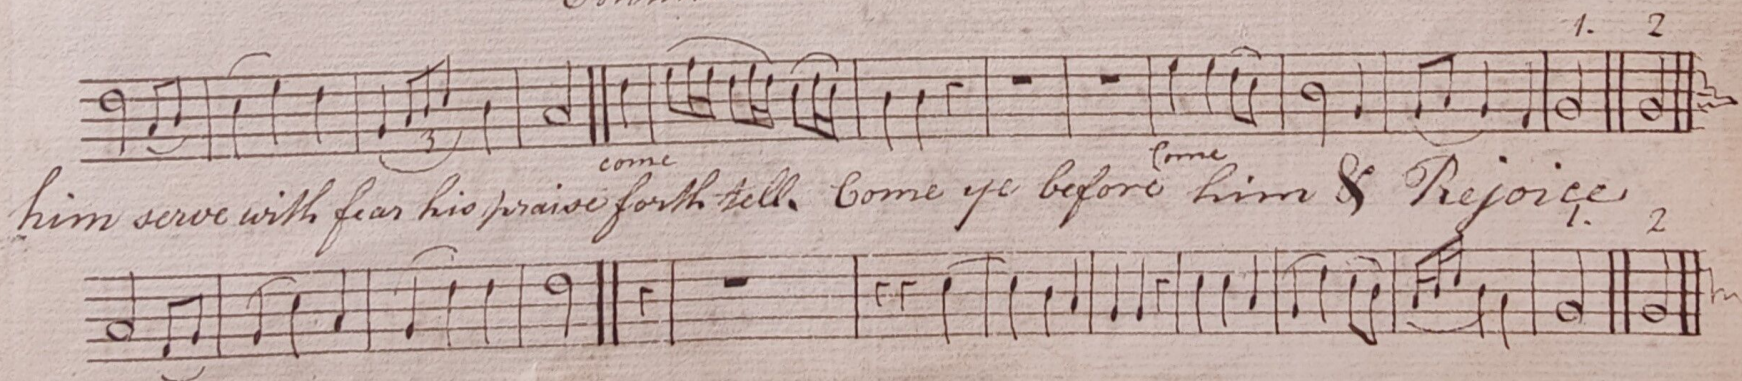 1. 2
3
come Come
him serve with fear his praise forth tell. Come ye before him & Rejoice
1. 2